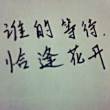 谁的等待.
恰逢花开